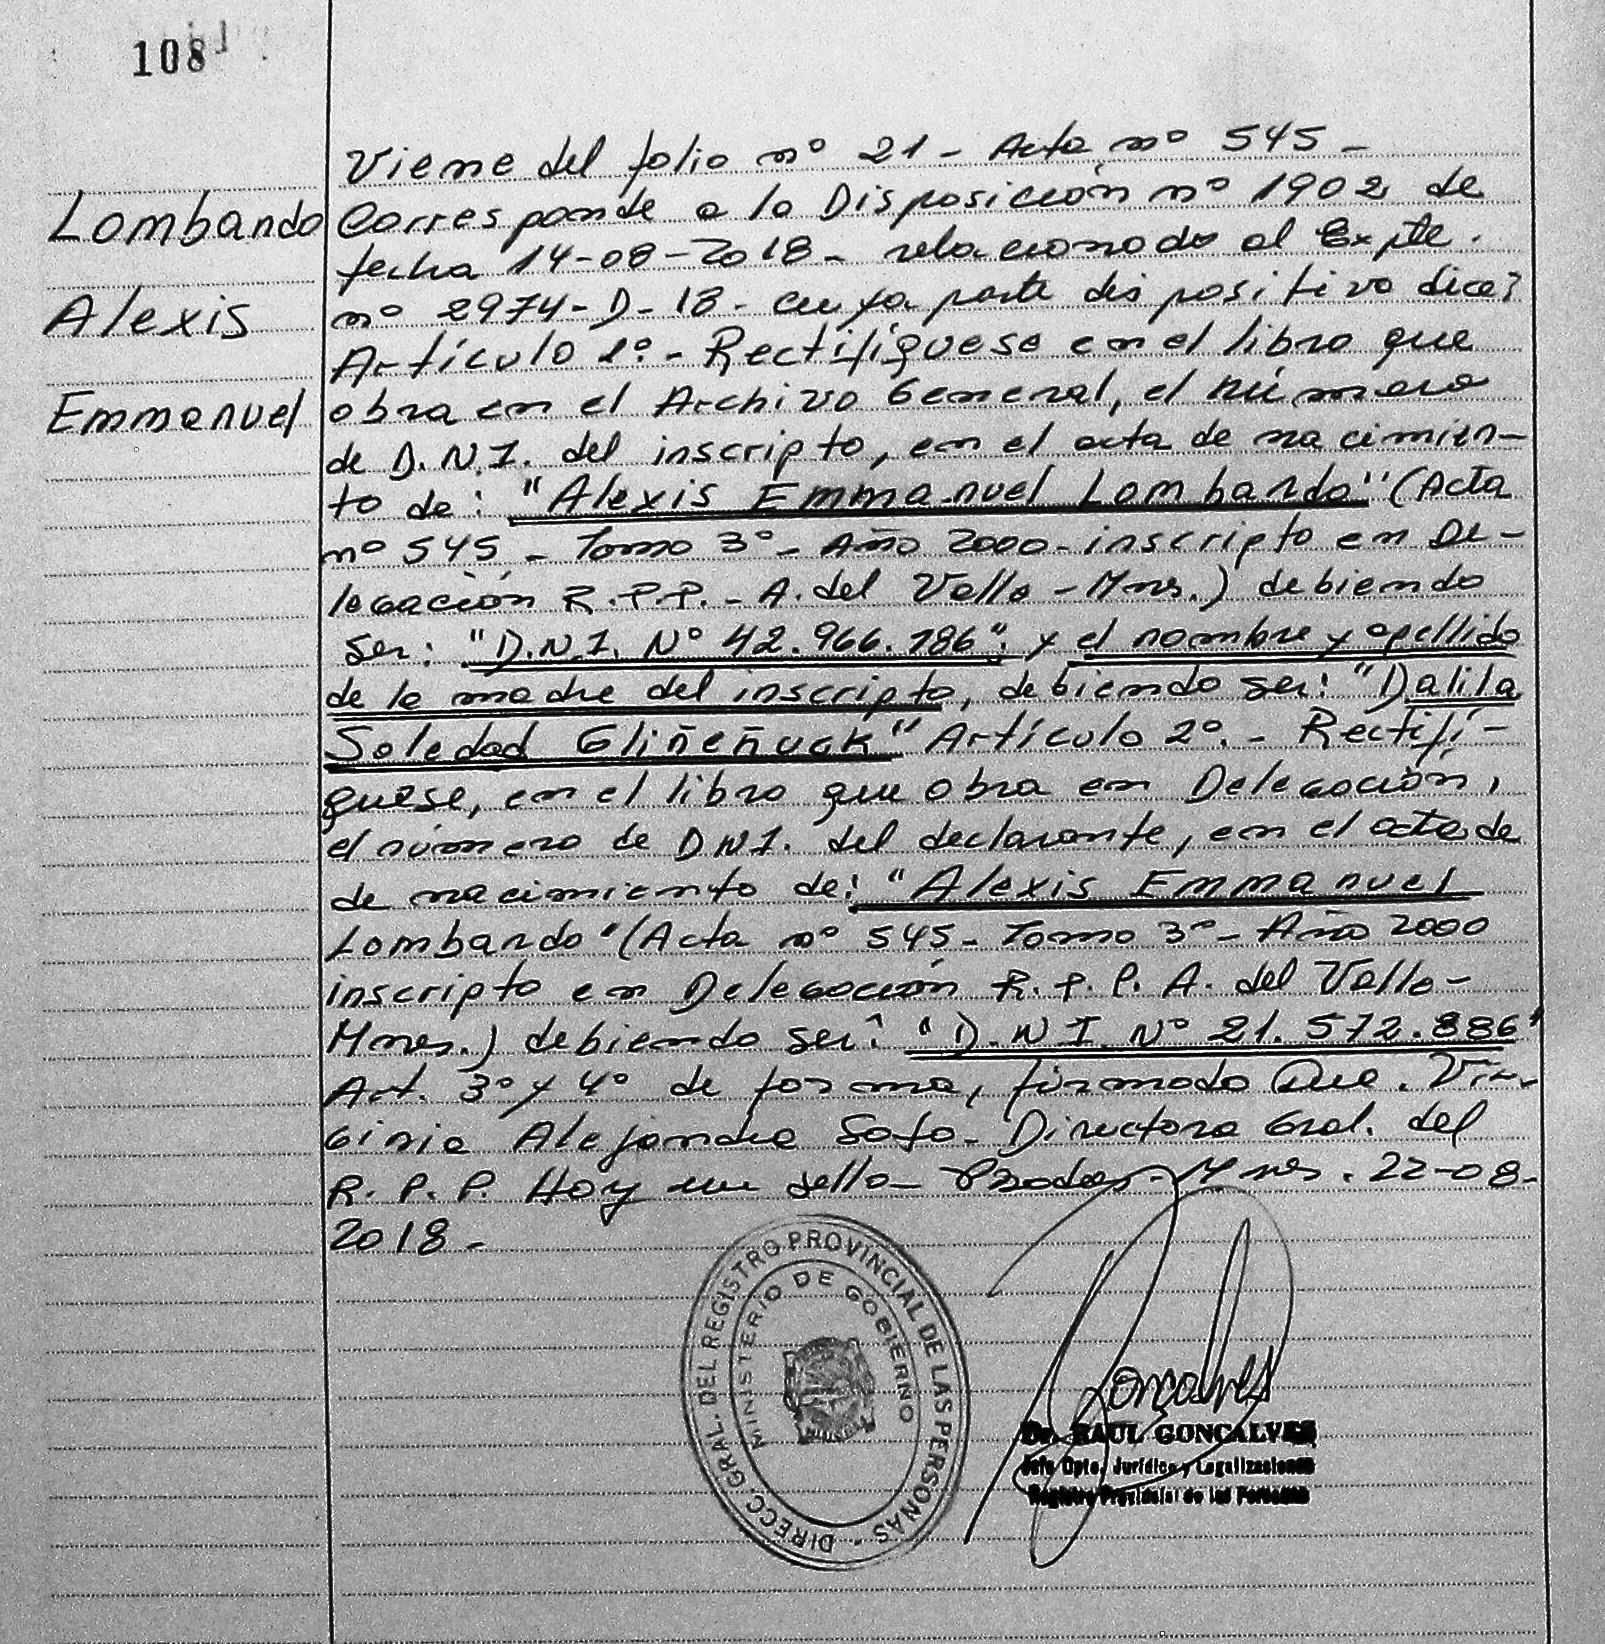 108
Lombando
Alexis
Emmanuel
Viene del folio nº 21 - Acta nº 545 -
Corresponde a la Disposición nº 1902 de
fecha 14-08-2018 - relacionado al Expte.
nº 2974-D-18- cuya parte dispositiva dice:
Artículo 1º.- Rectifíquese en el libro que
obra en el Archivo General, el número
de D.N.I. del inscripto, en el acta de nacimien-
to de: "Alexis Emmanuel Lombando" (Acta
nº 545 - Tomo 3º - Año 2000 - inscripto en De-
legación R.P.P. - A. del Valle - Mnes.) debiendo
ser: "D.N.I. Nº 42.966.786"; y el nombre y apellido
de la madre del inscripto, debiendo ser: "Dalila
Soledad Gliñeñuck" Artículo 2º. - Rectifí-
quese, en el libro que obra en Delegación,
el número de DNI. del declarante, en el acta de
de nacimiento de: "Alexis Emmanuel
Lombando" (Acta nº 545 - Tomo 3º - Año 2000
inscripto en Delegación R.P.P. A. del Valle -
Mnes.) debiendo ser: "D.N.I. Nº 21.572.886"
Art. 3º y 4º de forma, firmado Que. Vir-
ginia Alejandra Soto - Directora Gral. del
R.P.P. Hay un sello - Posadas - Mnes. 22-08-
2018 -
DIRECC. GRAL. DEL REGISTRO PROVINCIAL DE LAS PERSONAS
MINISTERIO DE GOBIERNO
Goncalves
Dr. RAUL GONCALVES
Jefe Dpto. Jurídico y Legalizaciones
Registro Provincial de las Personas